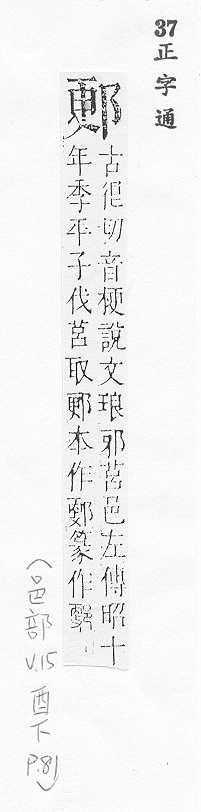 37正字通
郠
古很切音梗說文琅邪莒邑左傳昭十
年季平子伐莒取郠本作篆作
(邑部
V.15
酉下
P.81)